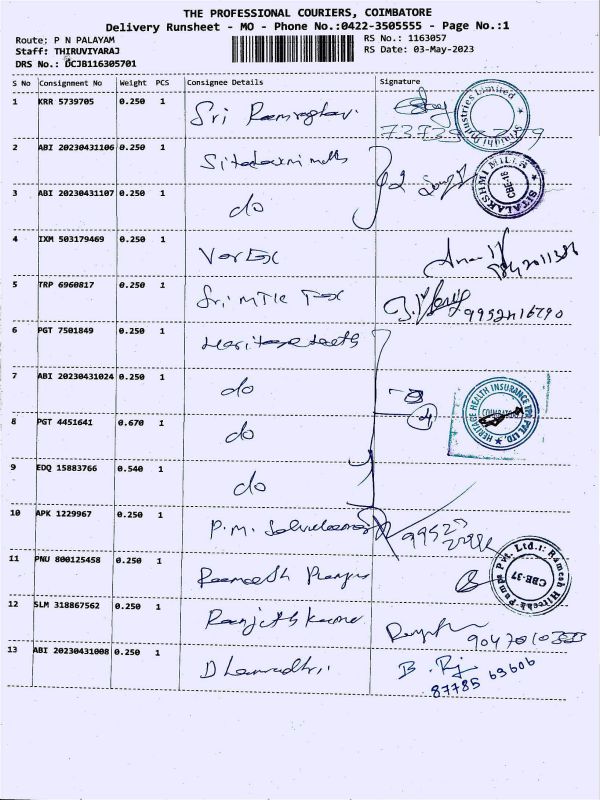 THE PROFESSIONAL COURIERS, COIMBATORE
Delivery Runsheet - MO - Phone No.:0422-3505555 - Page No.:1
Route: P N PALAYAM
RS No.: 1163057
Staff: THIRUVIYARAJ
RS Date: 03-May-2023
DRS No.: DCJB116305701
S No Consignment No Weight PCS Consignee Details Signature
1 KRR 5739705 0.250 1 Sri Ramraghav.
2 ABI 20230431106 0.250 1 Sitalaxmi mills
3 ABI 20230431107 0.250 1 do
SITALAKSHMI MILLS
CBE-16
4 IXM 503179469 0.250 1
5 TRP 6960817 0.250 1 Sri MTK Tex
9952416790
6 PGT 7501849 0.250 1 Heritage health
7 ABI 20230431024 0.250 1 do
8 PGT 4451641 0.670 1 do
HERITAGE HEALTH INSURANCE TPA PVT. LTD.
COIMBATORE
9 EDQ 15883766 0.540 1 do
10 APK 1229967 0.250 1 P.M.
11 PNU 800125458 0.250 1 Rameesh Pumps
Ramesh Hitech Pumps Pvt. Ltd.:
CBE-37
12 SLM 318867562 0.250 1 Ranjeeth Kumar
13 ABI 20230431008 0.250 1
B. Raj
87785 69606